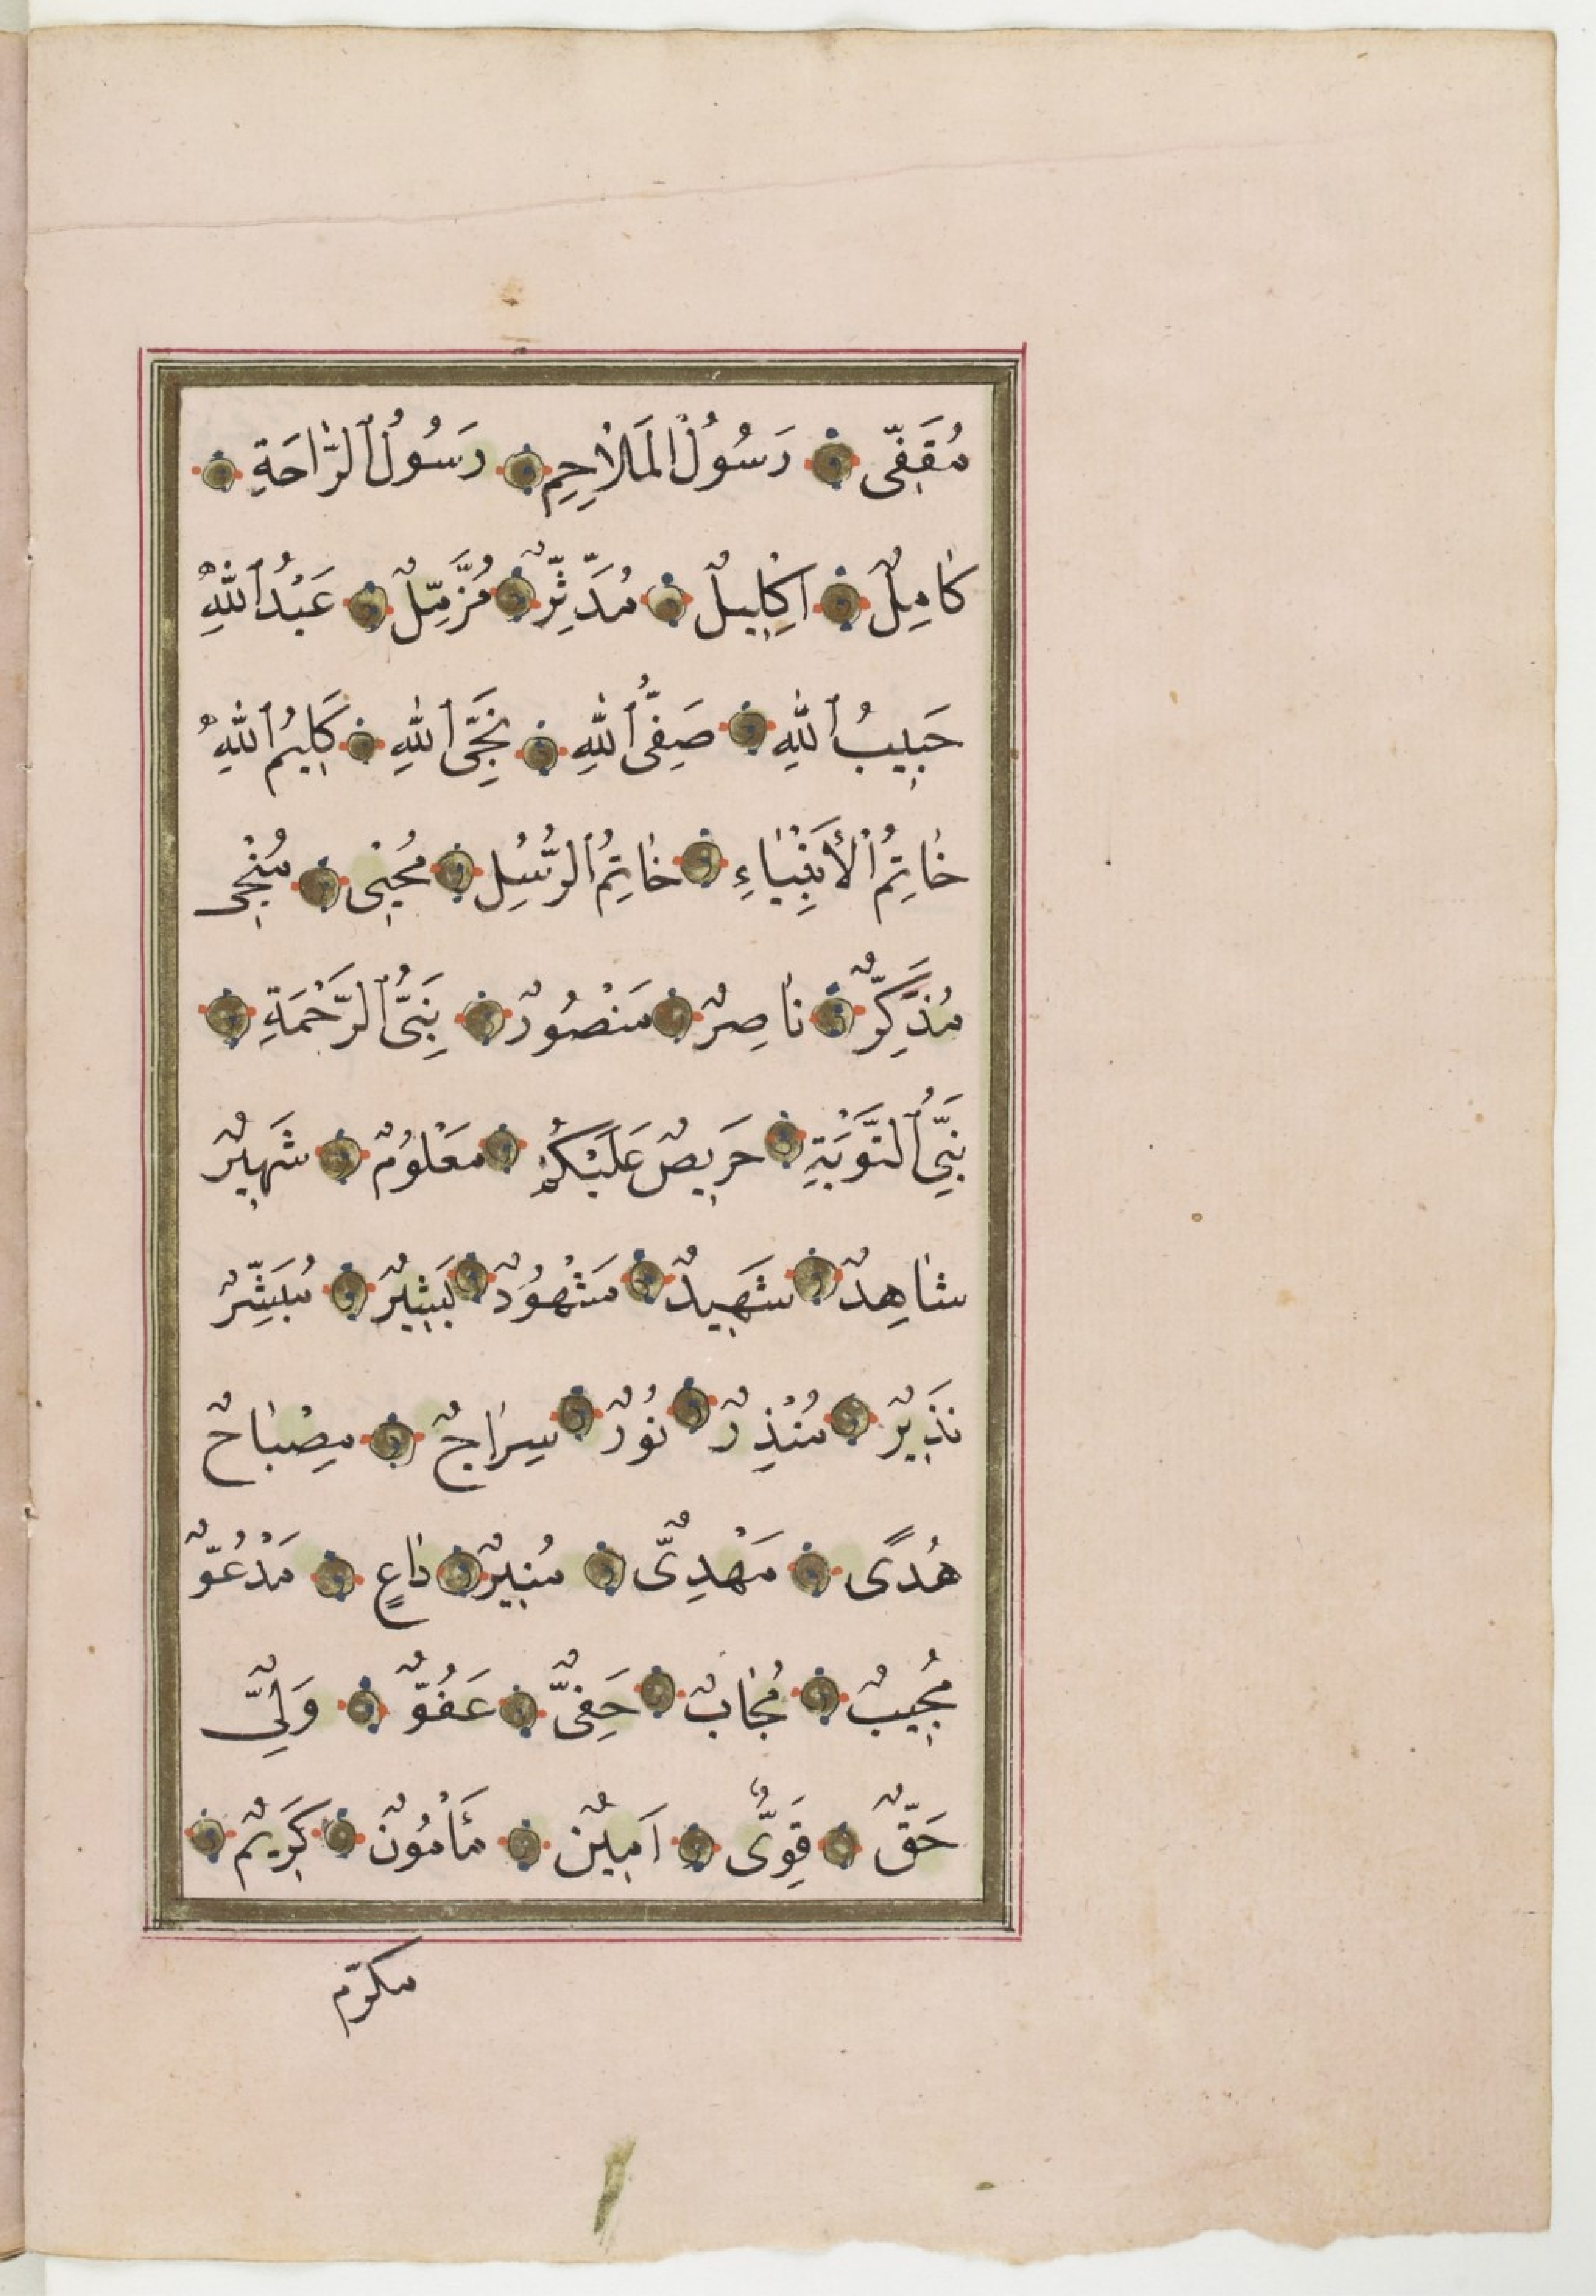 مُقَفِّى رَسُولُ الْمَلَاحِمِ رَسُولُ الرَّاحَةِ
كَامِلٌ اِكْلِيلٌ مُدَّثِّرٌ مُزَّمِّلٌ عَبْدُ اللهِ
حَبِيبُ اللهِ صَفِىُّ اللهِ نَجِىُّ اللهِ كَلِيمُ اللهِ
خَاتِمُ الْأَنْبِيَاءِ خَاتِمُ الرُّسُلِ مُحْيِى مُنْجِى
مُذَكِّرٌ نَاصِرٌ مَنْصُورٌ نَبِىُّ الرَّحْمَةِ
نَبِىُّ التَّوْبَةِ حَرِيصٌ عَلَيْكُمْ مَعْلُومٌ شَهِيرٌ
شَاهِدٌ شَهِيدٌ مَشْهُودٌ بَشِيرٌ مُبَشِّرٌ
نَذِيرٌ مُنْذِرٌ نُورٌ سِرَاجٌ مِصْبَاحٌ
هُدًى مَهْدِىٌّ مُنِيرٌ دَاعٍ مَدْعُوٌّ
مُجِيبٌ مُجَابٌ حَفِىٌّ عَفُوٌّ وَلِىٌّ
حَقٌّ قَوِىٌّ اَمِينٌ مَأْمُونٌ كَرِيمٌ
مكرّم